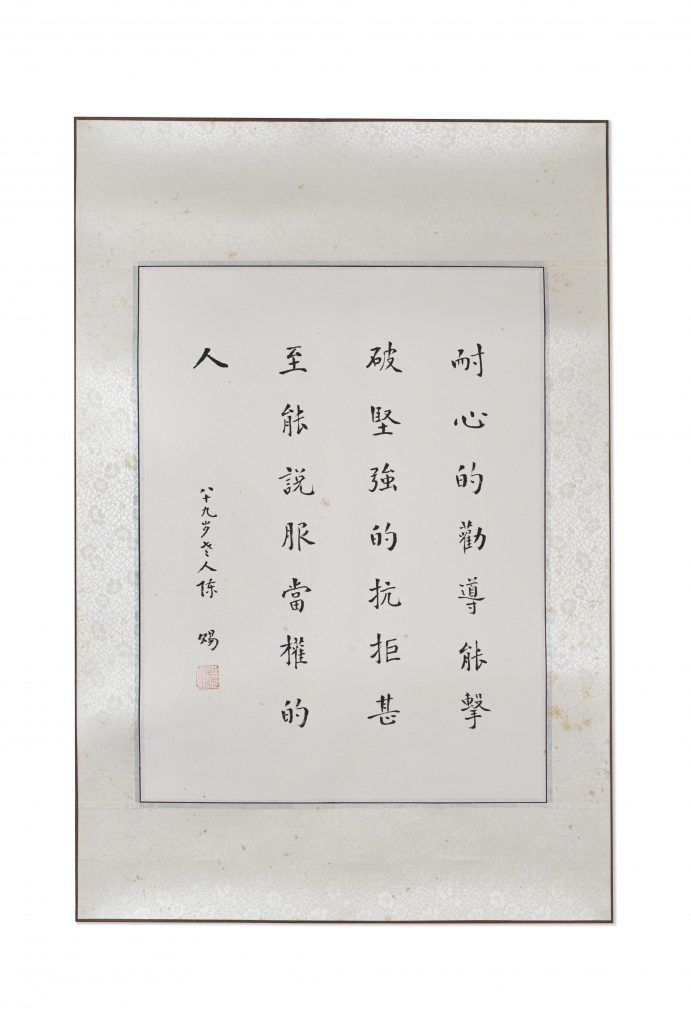 耐心的勸導能擊
破堅強的抗拒甚
至能説服當權的
人
八十九岁老人陈 赐